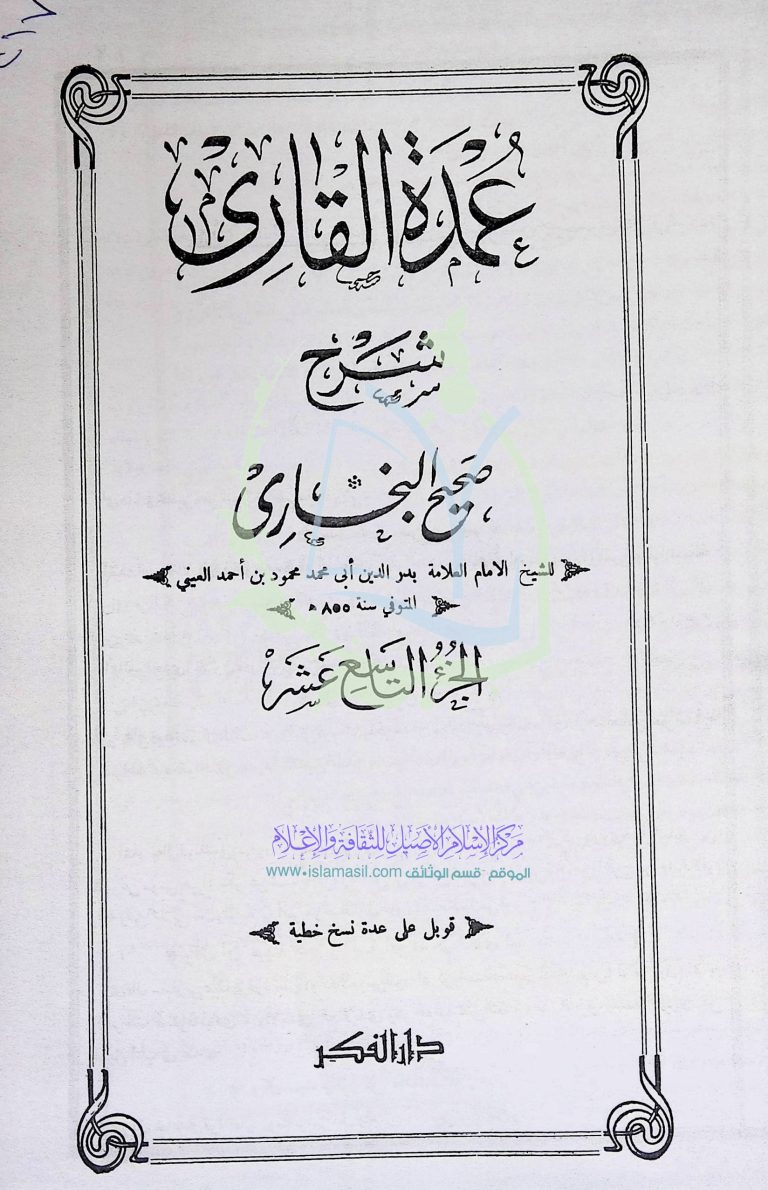 عُمْدَةُ القَارِئ
شَرْح
صَحِيح البُخَارِي
للشيخ الامام العلامة بدر الدين أبي محمد محمود بن أحمد العيني
المتوفي سنة ٨٥٥ ه
الجُزْءُ التَّاسِع عَشَر
مركز الإسلام الأصيل للثقافة والإعلام
الموقع - قسم الوثائق www.islamasil.com
قوبل على عدة نسخ خطية
دار الفكر